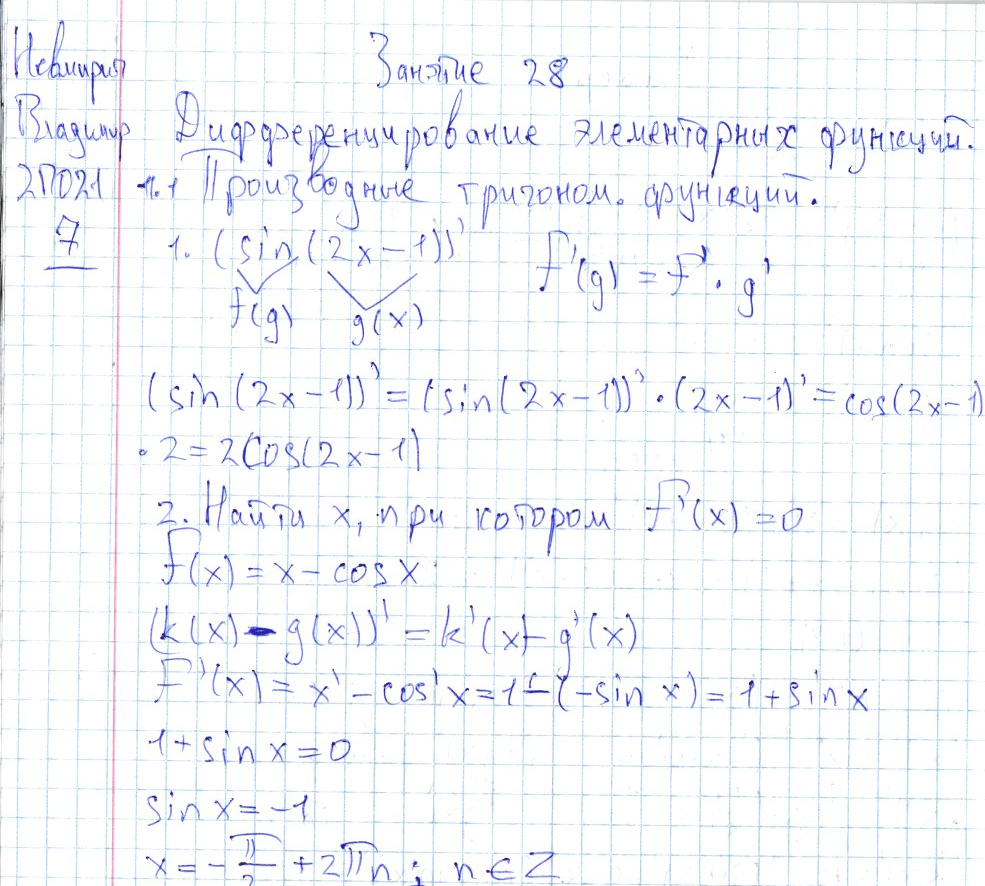 Занятие 28
Владимир Дифференцирование элементарных функций.
2П021 1.1 Производные тригоном. функций.
7
1. (sin(2x-1))' F'(g) = F' · g'
f(g) g(x)
(sin(2x-1))' = (sin(2x-1))' · (2x-1)' = cos(2x-1)
· 2 = 2cos(2x-1)
2. Найти x, при котором F'(x) = 0
F(x) = x - cos x
(k(x) - g(x))' = k'(x) - g'(x)
F'(x) = x' - cos'x = 1 - (-sin x) = 1 + sin x
1 + sin x = 0
sin x = -1
x = -π/2 + 2πn; n ∈ Z